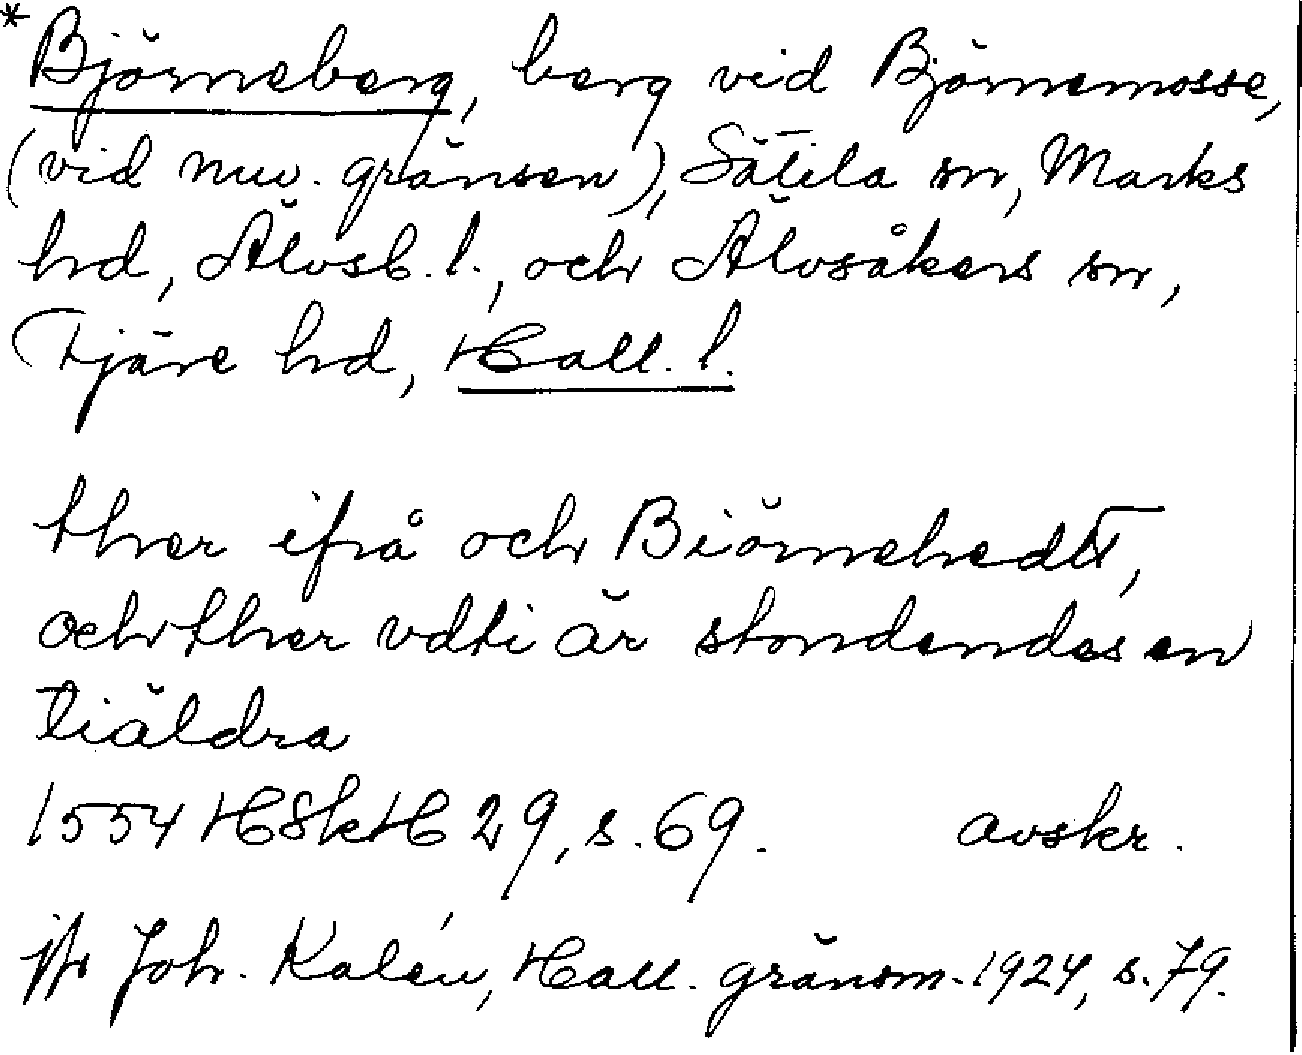 *Björneberg, berg vid Björnemosse,
(vid nuv. gränsen), Sätila sn, Marks
hd, Älvsb. l., och Älvsåkers sn,
Fjäre hd, Hall. l.
ther ifrå och Biörnehedt,
och ther vdti är stondendes en
tiäldra
1554 HSkH 29, s. 69. avskr.
jfr Joh. Kalén, Hall. gränsm. 1924, s. 79.